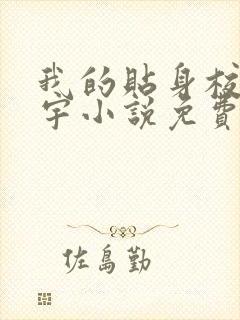 我的貼身校
宇小說免費
佐島勤